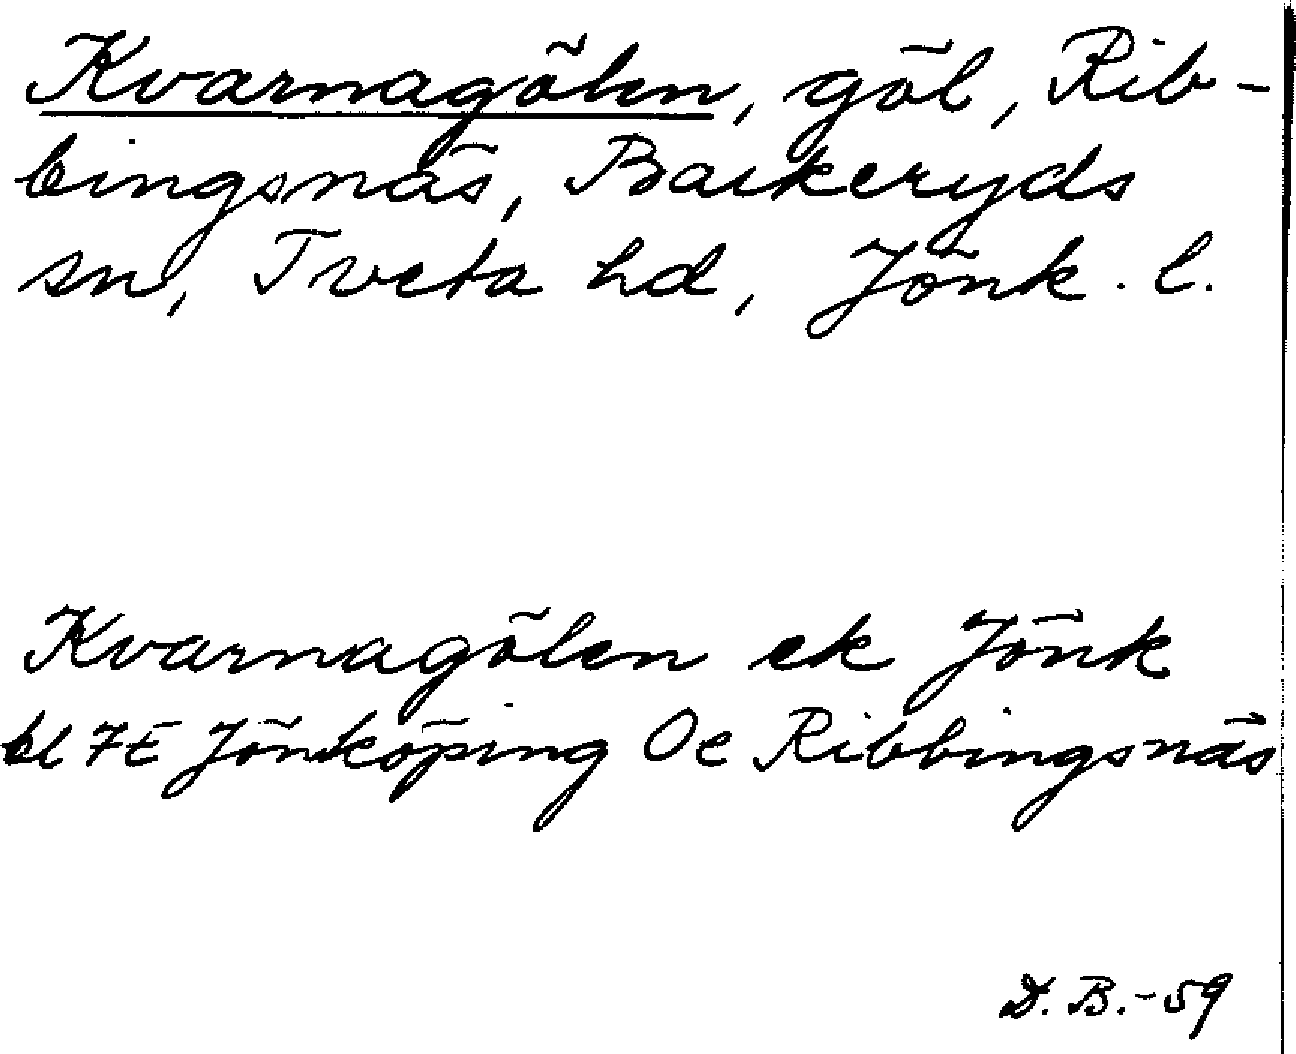 Kvarnagölen, göl, Rib-
bingsnäs, Bankeryds
sn, Tveta hd, Jönk. l.
Kvarnagölen ek Jönk
bl 7E Jönköping Oe Ribbingsnäs
D. B. - 59